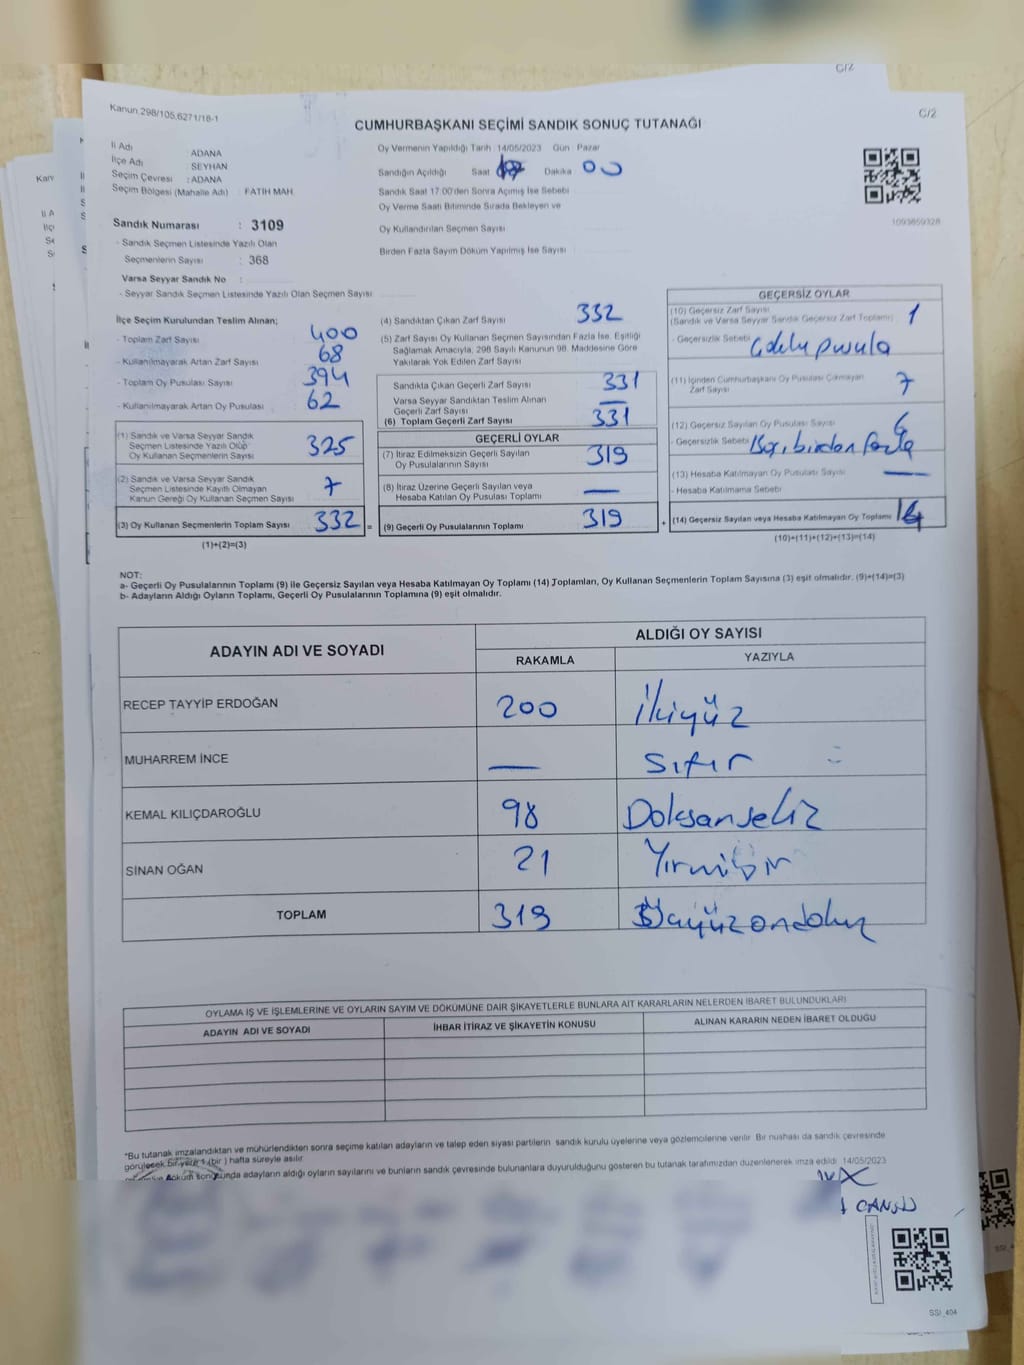 C/2
Kanun 298/105,6271/18-1
C/2
CUMHURBAŞKANI SEÇİMİ SANDIK SONUÇ TUTANAĞI
İl Adı : ADANA
İlçe Adı : SEYHAN
Seçim Çevresi : ADANA
Seçim Bölgesi (Mahalle Adı) : FATİH MAH.
Sandık Numarası : 3109
- Sandık Seçmen Listesinde Yazılı Olan
Seçmenlerin Sayısı : 368
Varsa Seyyar Sandık No :
- Seyyar Sandık Seçmen Listesinde Yazılı Olan Seçmen Sayısı
Oy Vermenin Yapıldığı Tarih 14/05/2023 Gün : Pazar
Sandığın Açıldığı Saat Dakika 00
Sandık Saat 17.00'den Sonra Açılmış İse Sebebi
Oy Verme Saati Bitiminde Sırada Bekleyen ve
Oy Kullandırılan Seçmen Sayısı
Birden Fazla Sayım Döküm Yapılmış İse Sayısı
1093859328
İlçe Seçim Kurulundan Teslim Alınan;
- Toplam Zarf Sayısı : 400
- Kullanılmayarak Artan Zarf Sayısı : 68
- Toplam Oy Pusulası Sayısı : 394
- Kullanılmayarak Artan Oy Pusulası : 62
(1) Sandık ve Varsa Seyyar Sandık
Seçmen Listesinde Yazılı Olup
Oy Kullanan Seçmenlerin Sayısı 325
(2) Sandık ve Varsa Seyyar Sandık
Seçmen Listesinde Kayıtlı Olmayan
Kanun Gereği Oy Kullanan Seçmen Sayısı 7
(3) Oy Kullanan Seçmenlerin Toplam Sayısı 332 =
(1)+(2)=(3)
(4) Sandıktan Çıkan Zarf Sayısı 332
(5) Zarf Sayısı Oy Kullanan Seçmen Sayısından Fazla İse, Eşitliği
Sağlamak Amacıyla, 298 Sayılı Kanunun 98. Maddesine Göre
Yakılarak Yok Edilen Zarf Sayısı
Sandıkta Çıkan Geçerli Zarf Sayısı 331
Varsa Seyyar Sandıktan Teslim Alınan
Geçerli Zarf Sayısı —
(6) Toplam Geçerli Zarf Sayısı 331
GEÇERLİ OYLAR
(7) İtiraz Edilmeksizin Geçerli Sayılan
Oy Pusulalarının Sayısı 319
(8) İtiraz Üzerine Geçerli Sayılan veya
Hesaba Katılan Oy Pusulası Toplamı —
(9) Geçerli Oy Pusulalarının Toplamı 319 +
GEÇERSİZ OYLAR
(10) Geçersiz Zarf Sayısı
(Sandık ve Varsa Seyyar Sandık Geçersiz Zarf Toplamı) : 1
- Geçersizlik Sebebi pusula
(11) İçinden Cumhurbaşkanı Oy Pusulası Çıkmayan
Zarf Sayısı 7
(12) Geçersiz Sayılan Oy Pusulası Sayısı
- Geçersizlik Sebebi birden fazla
(13) Hesaba Katılmayan Oy Pusulası Sayısı —
- Hesaba Katılmama Sebebi
(14) Geçersiz Sayılan veya Hesaba Katılmayan Oy Toplamı
(10)+(11)+(12)+(13)=(14)
NOT:
a- Geçerli Oy Pusulalarının Toplamı (9) ile Geçersiz Sayılan veya Hesaba Katılmayan Oy Toplamı (14) Toplamları, Oy Kullanan Seçmenlerin Toplam Sayısına (3) eşit olmalıdır. (9)+(14)=(3)
b- Adayların Aldığı Oyların Toplamı, Geçerli Oy Pusulalarının Toplamına (9) eşit olmalıdır.
ADAYIN ADI VE SOYADI
ALDIĞI OY SAYISI
RAKAMLA YAZIYLA
RECEP TAYYİP ERDOĞAN 200 İkiyüz
MUHARREM İNCE — Sıfır
KEMAL KILIÇDAROĞLU 98 Doksansekiz
SİNAN OĞAN 21 Yirmibir
TOPLAM 319 Üçyüzondokuz
OYLAMA İŞ VE İŞLEMLERİNE VE OYLARIN SAYIM VE DÖKÜMÜNE DAİR ŞİKAYETLERLE BUNLARA AİT KARARLARIN NELERDEN İBARET BULUNDUKLARI
ADAYIN ADI VE SOYADI İHBAR İTİRAZ VE ŞİKAYETİN KONUSU ALINAN KARARIN NEDEN İBARET OLDUĞU
*Bu tutanak imzalandıktan ve mühürlendikten sonra seçime katılan adayların ve talep eden siyasi partilerin sandık kurulu üyelerine veya gözlemcilerine verilir. Bir nushası da sandık çevresinde
görülecek bir yere 1 (bir ) hafta süreyle asılır.
döküm sonucunda adayların aldığı oyların sayılarını ve bunların sandık çevresinde bulunanlara duyurulduğunu gösteren bu tutanak tarafımızdan düzenlenerek imza edildi. 14/05/2023
SSI_404